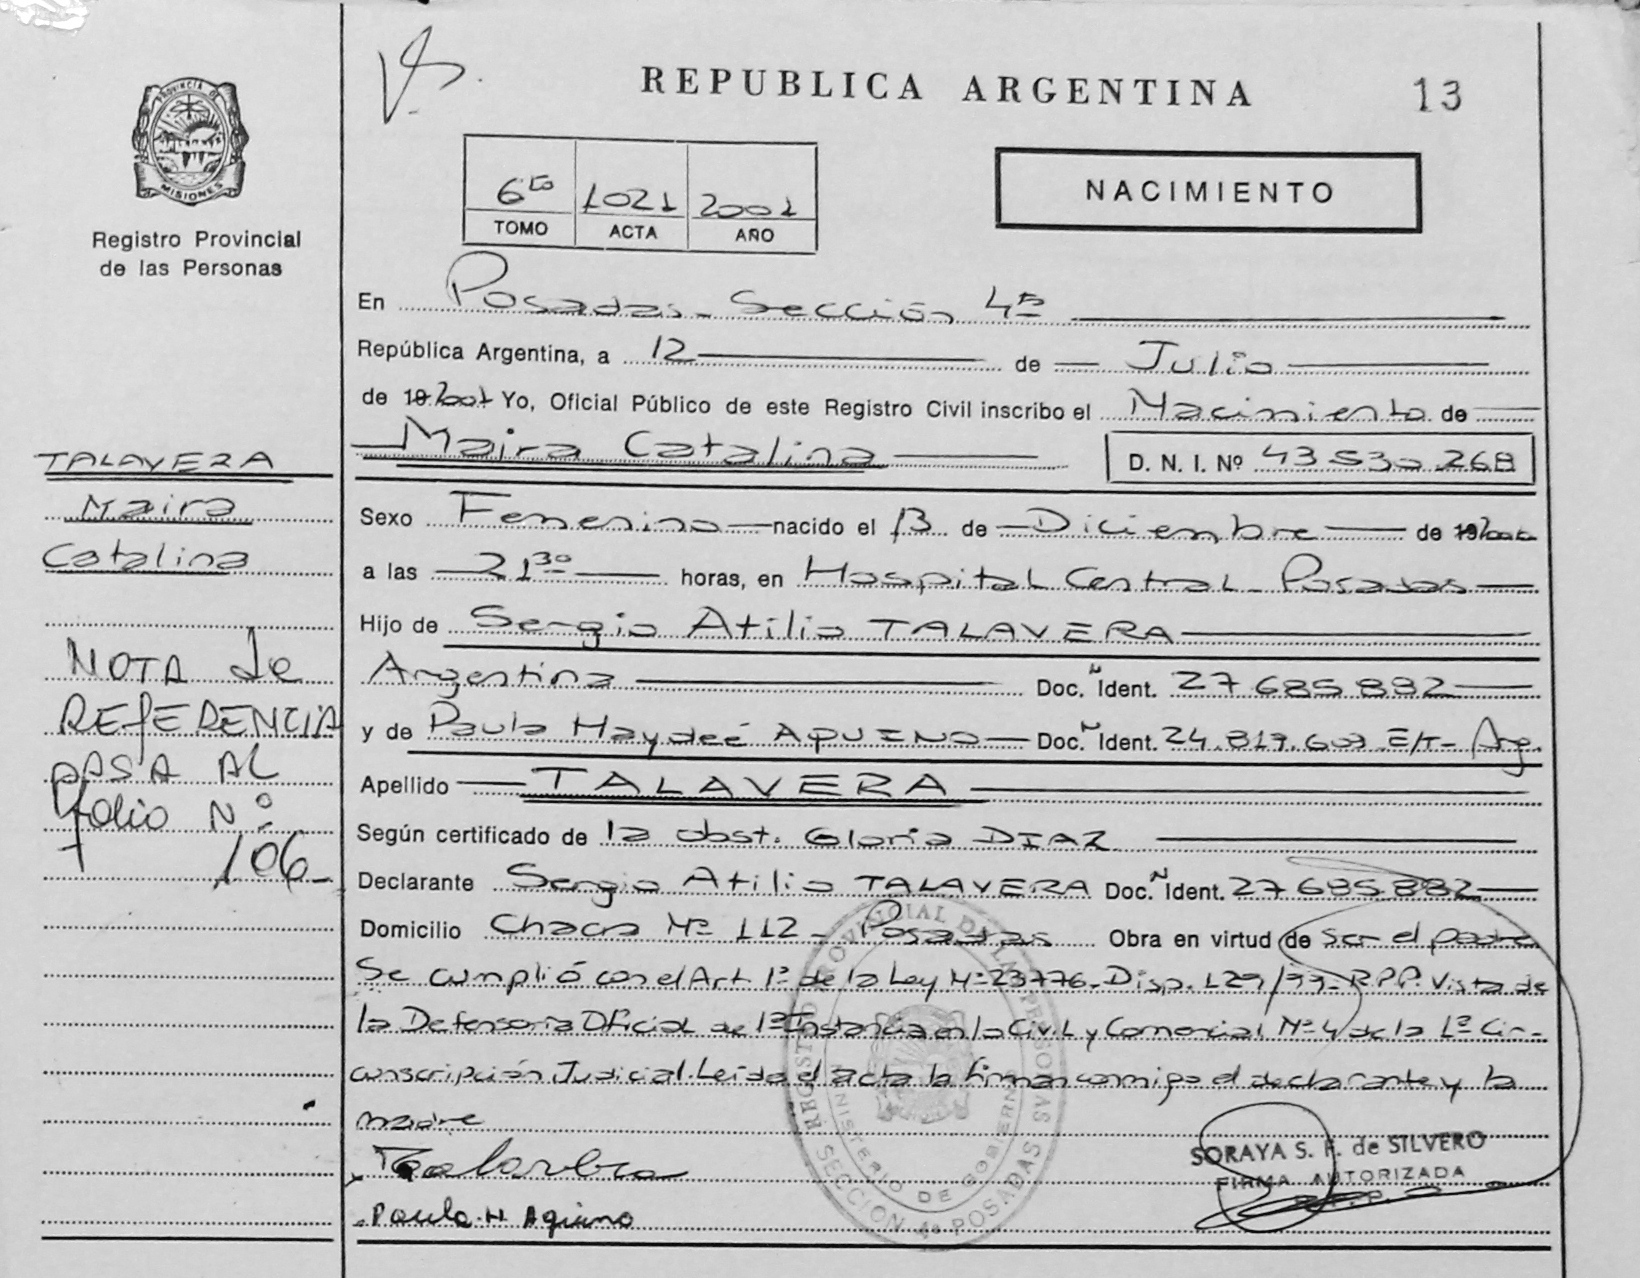 REPUBLICA ARGENTINA
13
PROVINCIA DE
MISIONES
Registro Provincial
de las Personas
6to 1021 2001
TOMO ACTA AÑO
NACIMIENTO
En Posadas - Sección 4ª
República Argentina, a 12 de Julio
de 19 2001 Yo, Oficial Público de este Registro Civil inscribo el Nacimiento de
Maira Catalina
D. N. I. Nº 43 530 268
Sexo Femenino nacido el 13 de Diciembre de 19 2000
a las 21 30 horas, en Hospital Central - Posadas
Hijo de Sergio Atilio TALAVERA
Argentina Doc. N Ident. 27 685 882
y de Paula Haydeé AQUINO Doc. N Ident. 24.817.609 E/T - Arg.
Apellido TALAVERA
Según certificado de la obst. Gloria DIAZ
Declarante Sergio Atilio TALAVERA Doc. N Ident. 27 685 882
Domicilio Chacra Nº 112 - Posadas Obra en virtud de ser el padre
Se cumplió con el Art. 1º de la Ley Nº 23776 - Disp. 129/99 - R.P.P. Vista de
la Defensoría Oficial de 1ª Instancia en lo Civil y Comercial Nº 4 de la 1ª Cir-
cunscripción Judicial. Leída el acta la firman conmigo el declarante y la
madre
Paula H Aquino
SORAYA S. F. de SILVERO
FIRMA AUTORIZADA
R.P.P.
REGISTRO PROVINCIAL DE LAS PERSONAS
MINISTERIO DE GOBIERNO
SECCION 4ª POSADAS
TALAVERA
Maira
Catalina
NOTA de
REFERENCIA
PASA AL
folio Nº
106-